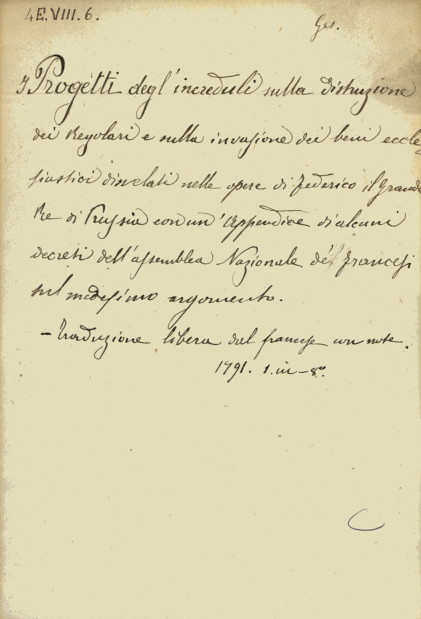 4E.VIII.6.
Ges.
I Progetti degl'increduli sulla distruzione
dei Regolari e sulla invasione dei beni eccle-
siastici disvelati nelle opere di Federico il Grande
Re di Prussia con un'Appendice di alcuni
decreti dell'assemblea Nazionale de' Francesi
sul medesimo argomento.
– Traduzione libera dal francese con note.
1791. 1. in – 8º